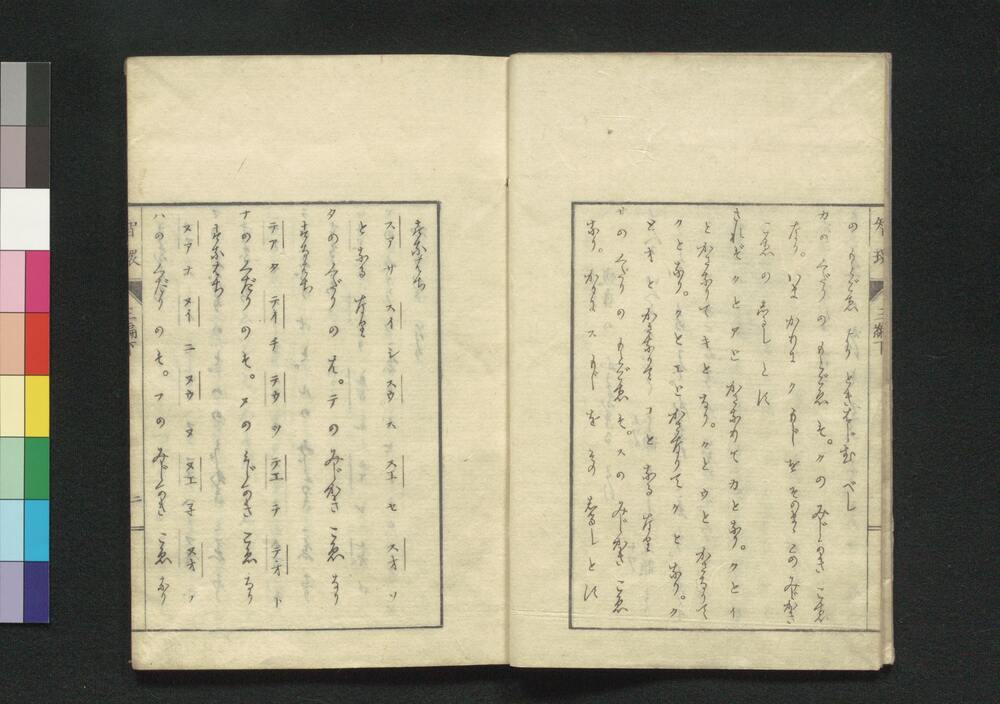 カの くだりの もじごゑ も。クの みじかき こゑ
なり。いま かりに ク もじ を そのまゝ このみじかき
こゑ の しるし とす
されど クと アと かさなりて カと なり。クと イ
と かさなりて キと なり。クと ウと かさなりて
クと なり。クと エと かさなりて ケと なり。ク
と オと かさなりて コと なる なり
サの くだりの もじごゑ も。スの みじかき こゑ
なり。かりに ス もじ を その しるし とす
すなはち
スア サ スイ シ スウ ス スエ セ スオ ソ
と なる なり
タの くだり の も。テ の みじかき こゑ なり
すなはち
テア タ テイ チ テウ ツ テエ テ テオ ト
ナの くだり の も。ヌの みじかき こゑ なり
すなはち
ヌア ナ ヌイ ニ ヌウ ヌ ヌエ ネ ヌオ ノ
ハの くだり の も。フの みじかき こゑ なり